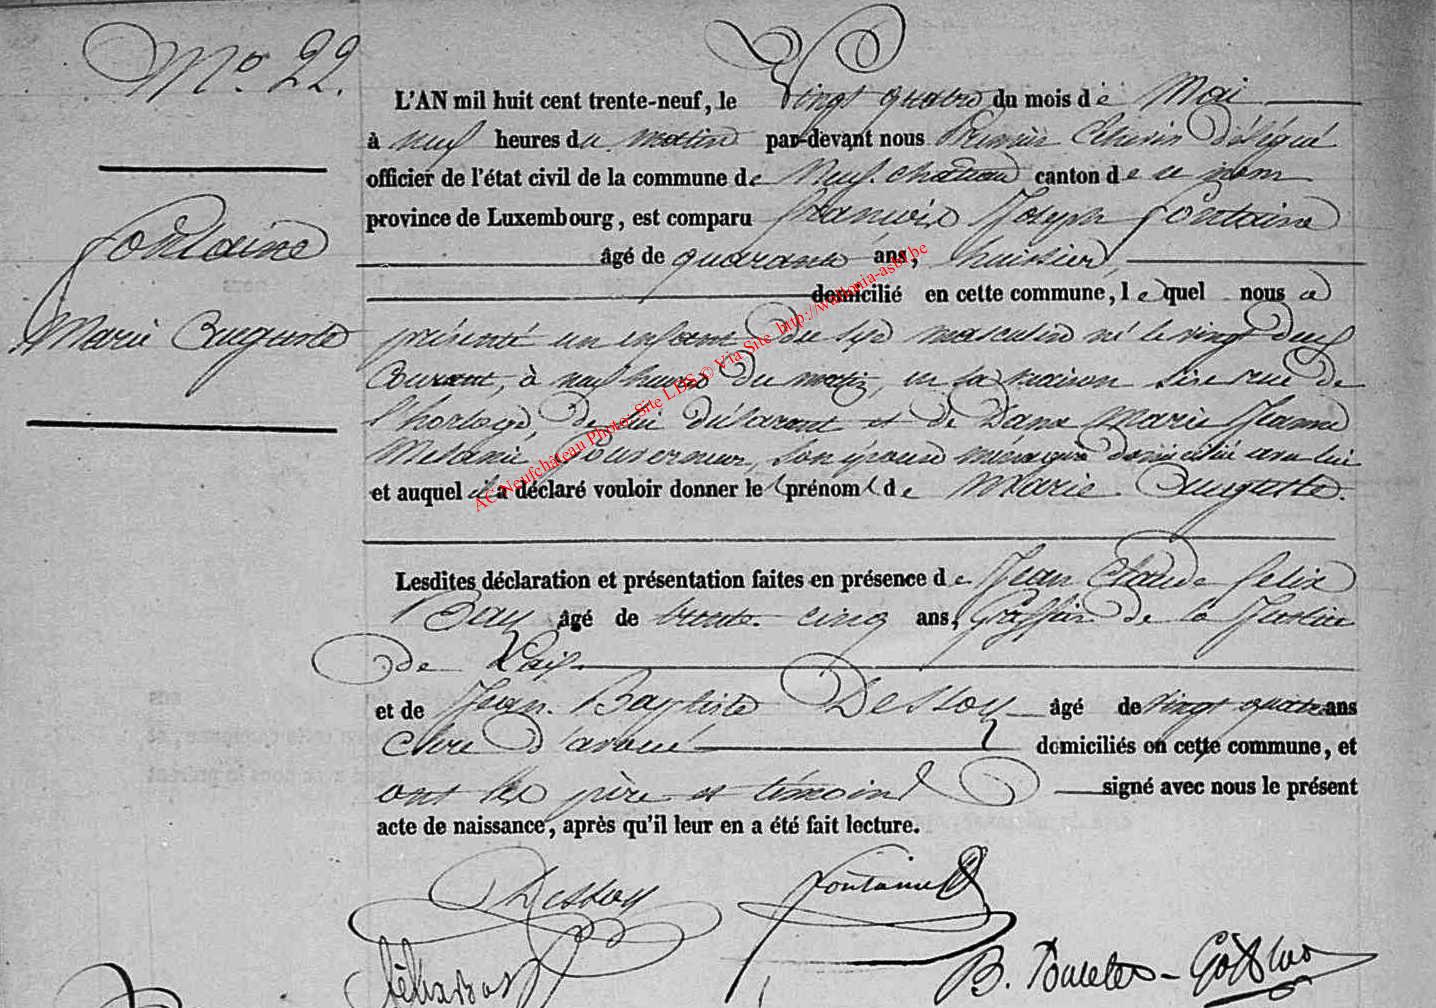 N° 22.
Fontaine
Marie Auguste
L'AN mil huit cent trente-neuf, le Vingt quatre du mois de Mai
à neuf heures du matin par-devant nous Premier Echevin Délégué
officier de l'état civil de la commune de Neufchateau canton de ce nom
province de Luxembourg, est comparu François Joseph Fontaine
âgé de quarante ans, huissier,
domicilié en cette commune, lequel nous a
présenté un enfant du sexe masculin né le vingt deux
Courant, à neuf heures du matin, en sa maison sise rue de
l'horloge, de lui déclarant et de Dame Marie Jeanne
Melanie Gouverneur, son épouse menagère domiciliée avec lui
et auquel il a déclaré vouloir donner les prénoms de Marie Auguste.
Lesdites déclaration et présentation faites en présence de Jean Claude Felix
âgé de trente cinq ans, Greffier de la Justice
de Paix
et de Jean Baptiste Dessoy âgé de vingt quatre ans
Clerc d'avoué domiciliés en cette commune, et
ont les père et témoins signé avec nous le présent
acte de naissance, après qu'il leur en a été fait lecture.
Dessoy Fontaine
AC Neufchâteau Photo. Site LDS © Via Site http://wallonia-asbl.be